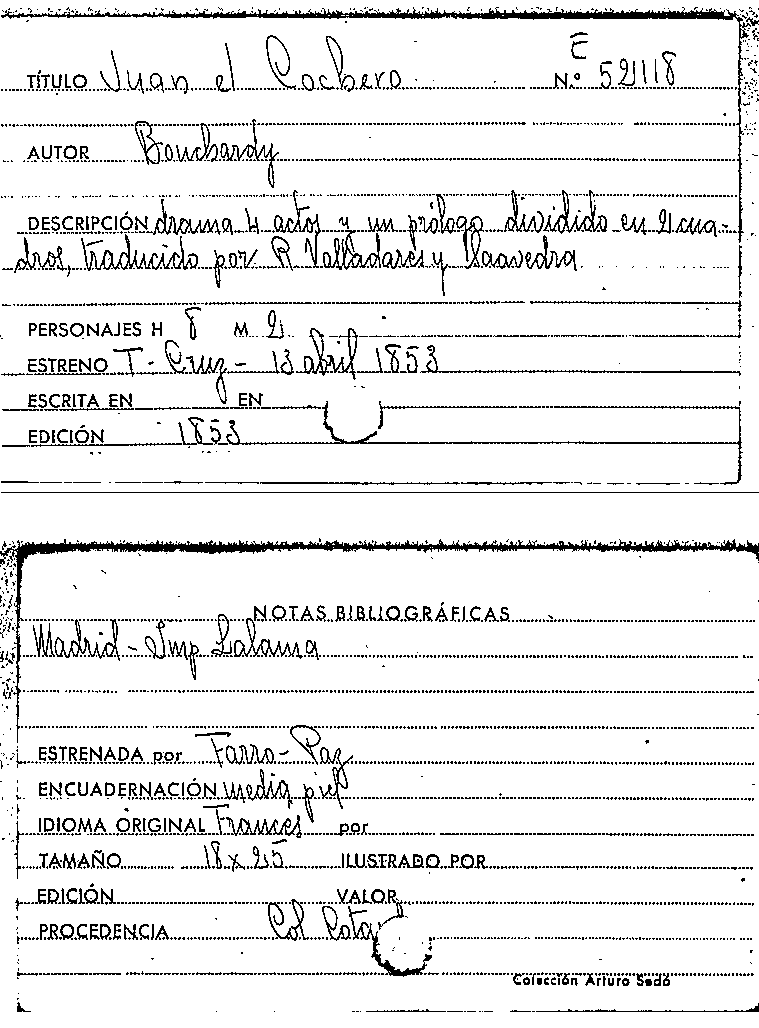 E
TÍTULO Juan el Cochero N.º 52118
AUTOR Bouchardy
DESCRIPCIÓN drama 4 actos y un prólogo dividido en 2 cua-
dros, traducido por R Valladares y Saavedra
PERSONAJES H 8 M 2
ESTRENO T - Cruz - 13 abril 1853
ESCRITA EN EN
EDICIÓN 1853
NOTAS BIBLIOGRÁFICAS
Madrid - Imp Lalama
ESTRENADA por Farro - Paz
ENCUADERNACIÓN media piel
IDIOMA ORIGINAL Frances por
TAMAÑO 18 x 25 ILUSTRADO POR
EDICIÓN VALOR
PROCEDENCIA Col Cota
Colección Arturo Sedó